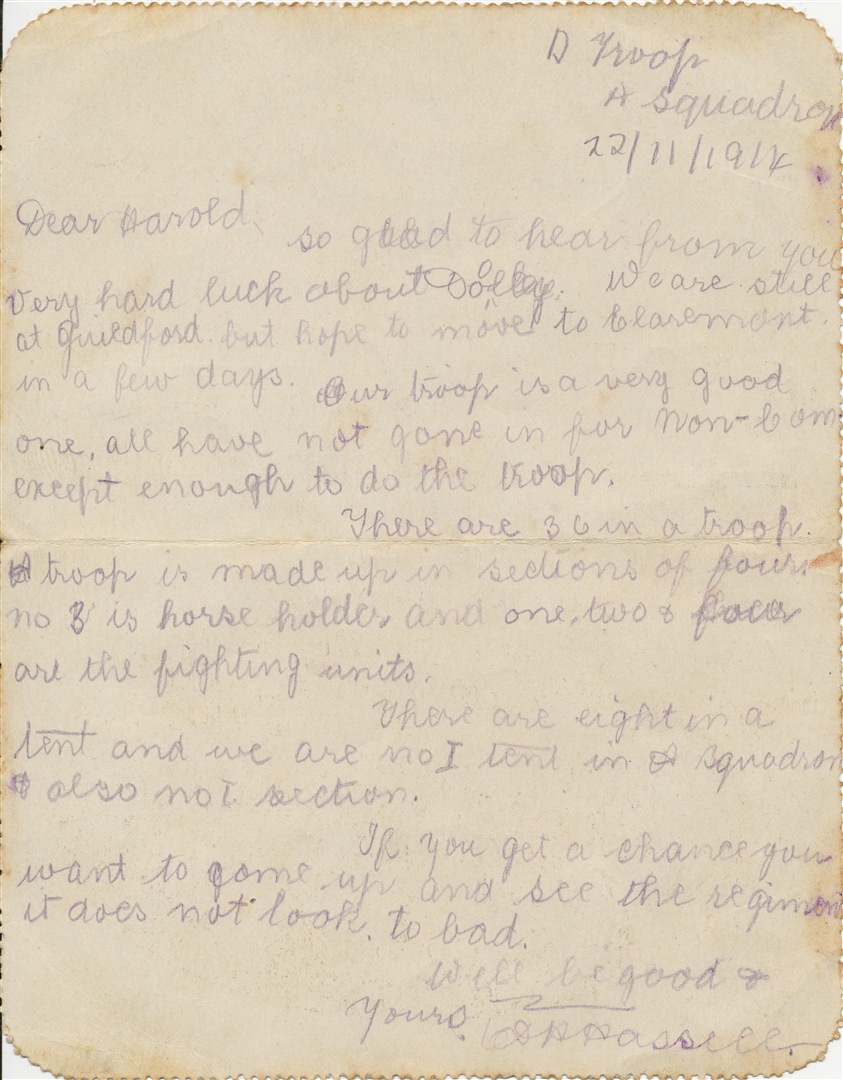 D Troop
A Squadron
22/11/1914
Dear Harold,
so glad to hear from you
Very hard luck about Dolly. We are still
at Guildford. but hope to move to Claremont.
in a few days. Our troop is a very good
one, all have not gone in for Non-Com
except enough to do the troop.
There are 36 in a troop.
A troop is made up in sections of fours.
no 3 is horse holder and one, two & four
are the fighting units.
There are eight in a
tent and we are no I tent in A Squadron
& also no I section.
If you get a chance you
want to come up and see the regiment
it does not look. to bad.
Well be good &
Yours.
Hassell.